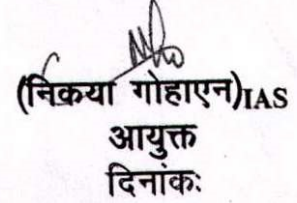 (निकया गोहाएन)IAS
आयुक्त
दिनांकः